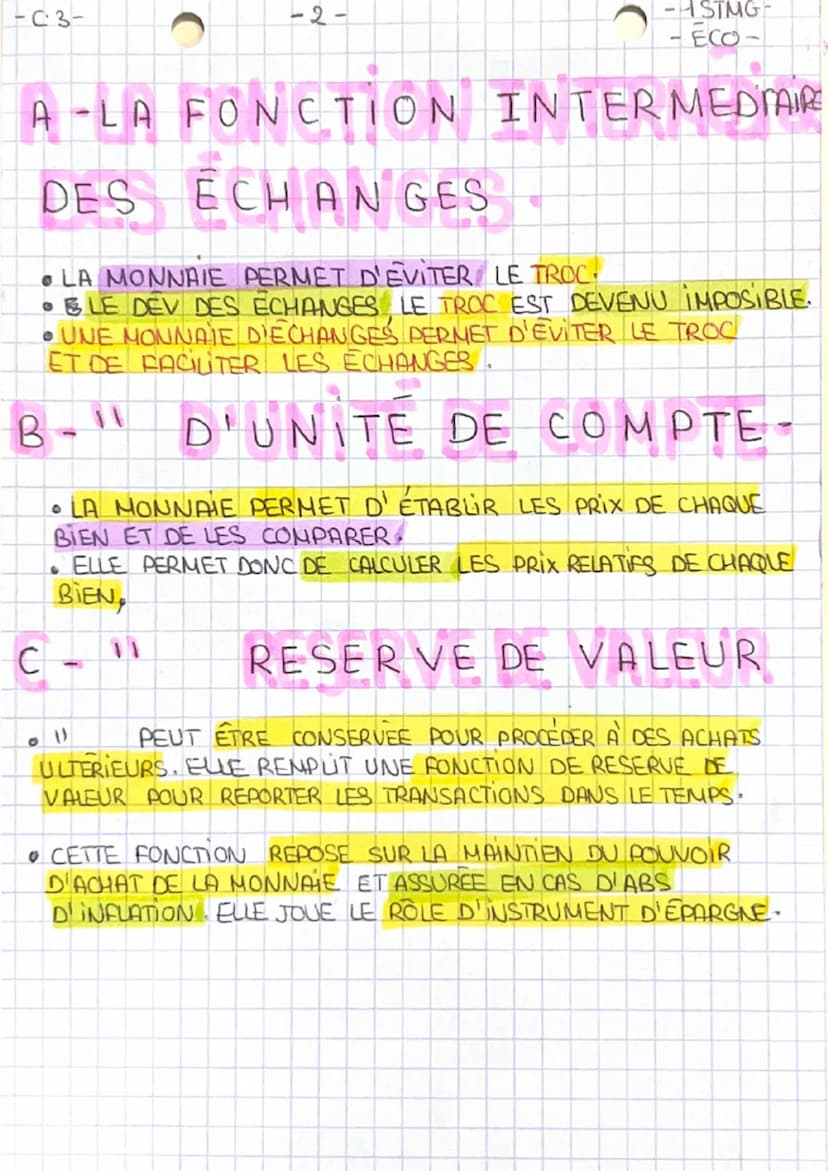 -C.3-
-2-
-1STMG-
-ÉCO-
A-LA FONCTION INTERMEDIAIRE
DES ÉCHANGES.
• LA MONNAIE PERMET D'ÉVITER LE TROC.
• LE DÉV DES ÉCHANGES, LE TROC EST DEVENU IMPOSIBLE.
• UNE MONNAIE D'ÉCHANGES PERMET D'ÉVITER LE TROC
ET DE FACILITER LES ÉCHANGES.
B-" D'UNITÉ DE COMPTE-
• LA MONNAIE PERMET D'ÉTABLIR LES PRIX DE CHAQUE
BIEN ET DE LES COMPARER.
• ELLE PERMET DONC DE CALCULER LES PRIX RELATIFS DE CHAQUE
BIEN,
C-" RESERVE DE VALEUR
• " PEUT ÊTRE CONSERVÉE POUR PROCÉDER À DES ACHATS
ULTÉRIEURS. ELLE REMPLIT UNE FONCTION DE RESERVE DE
VALEUR POUR REPORTER LES TRANSACTIONS DANS LE TEMPS.
• CETTE FONCTION REPOSE SUR LA MAINTIEN DU POUVOIR
D'ACHAT DE LA MONNAIE ET ASSURÉE EN CAS D'ABS
D'INFLATION. ELLE JOUE LE RÔLE D'INSTRUMENT D'ÉPARGNE.